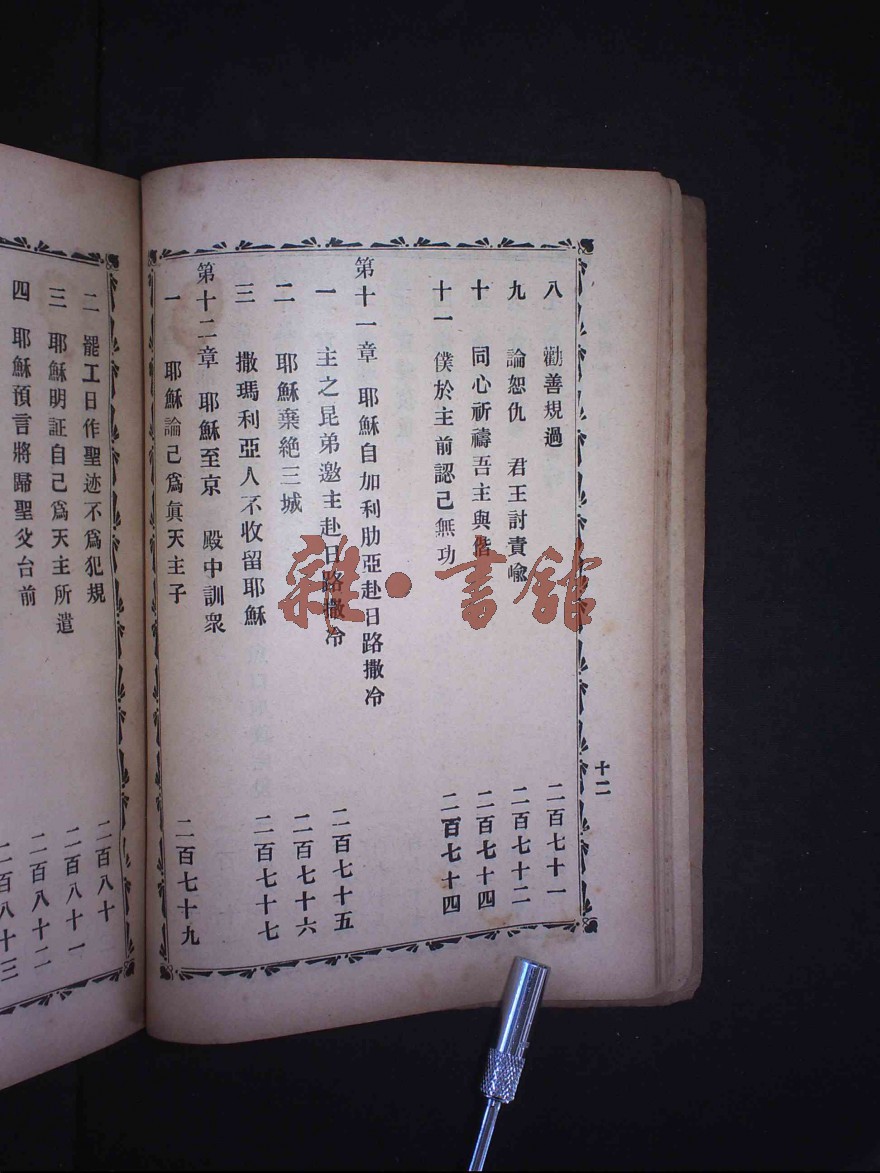 八 勸善規過 二百七十一
九 論恕仇 君王討責喩 二百七十二
十 同心祈禱吾主與偕 二百七十四
十一 僕於主前認己無功 二百七十四
第十一章 耶穌自加利肋亞赴日路撒冷
一 主之昆弟邀主赴日路撒冷 二百七十五
二 耶穌棄絶三城 二百七十六
三 撒瑪利亞人不收留耶穌 二百七十七
第十二章 耶穌至京 殿中訓衆
一 耶穌論己爲眞天主子 二百七十九
十二
二 罷工日作聖迹不爲犯規 二百八十
三 耶穌明証自己爲天主所遣 二百八十一
四 耶穌預言將歸聖父台前 二百八十二
二百八十三
雜·書館